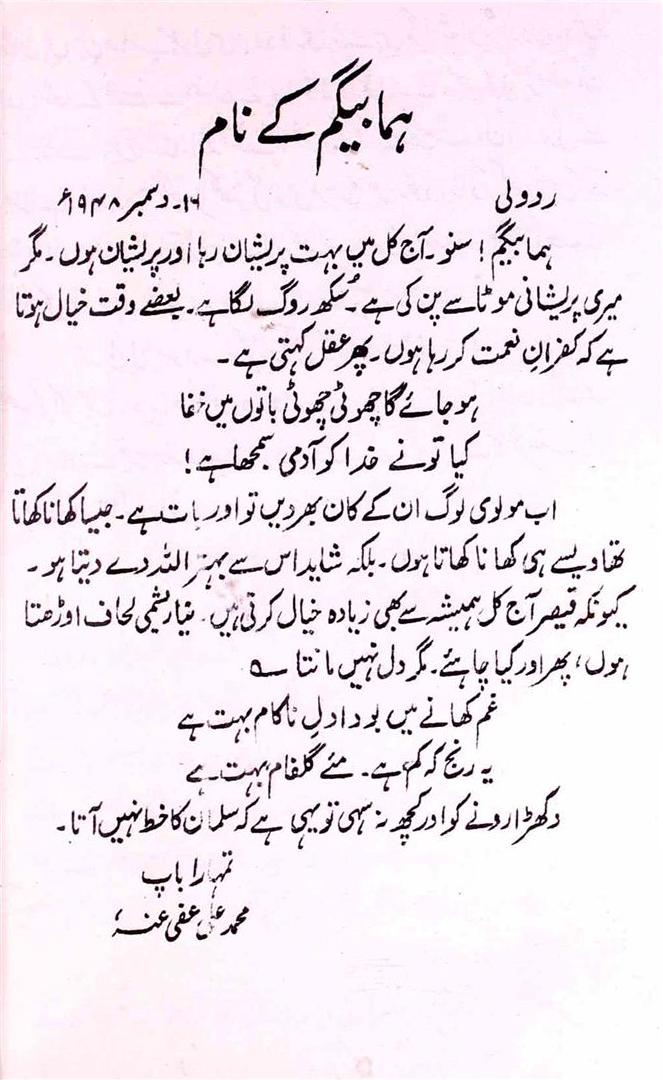 ہما بیگم کے نام
ردولی ۱۶۔ دسمبر ۱۹۴۸ء
ہما بیگم! سنو۔ آج کل میں بہت پریشان رہا اور پریشان ہوں۔ مگر
میری پریشانی موٹاسے پن کی ہے۔ سُکھ روگ لگا ہے۔ بعضے وقت خیال ہوتا
ہے کہ کفرانِ نعمت کر رہا ہوں۔ پھر عقل کہتی ہے۔
ہو جائے گا چھوٹی چھوٹی باتوں میں خفا
کیا تو نے خدا کو آدمی سمجھا ہے!
اب مولوی لوگ ان کے کان بھر دیں تو اور بات ہے۔ جیسا کھانا کھاتا
تھا ویسے ہی کھانا کھاتا ہوں۔ بلکہ شاید اس سے بہتر اللہ دے دیتا ہو۔
کیونکہ قیصر آج کل ہمیشہ سے بھی زیادہ خیال کرتی ہیں۔ نیا ریشمی لحاف اوڑھتا
ہوں، پھر اور کیا چاہئے۔ مگر دل نہیں مانتا ؎
غم کھانے میں بودا دلِ ناکام بہت ہے
یہ رنج کہ کم ہے۔ مئے گلفام بہت ہے
دکھڑا رونے کو اور کچھ نہ سہی تو یہی ہے کہ سلمان کا خط نہیں آتا۔
تمہارا باپ
محمد علی عفی عنہٗ